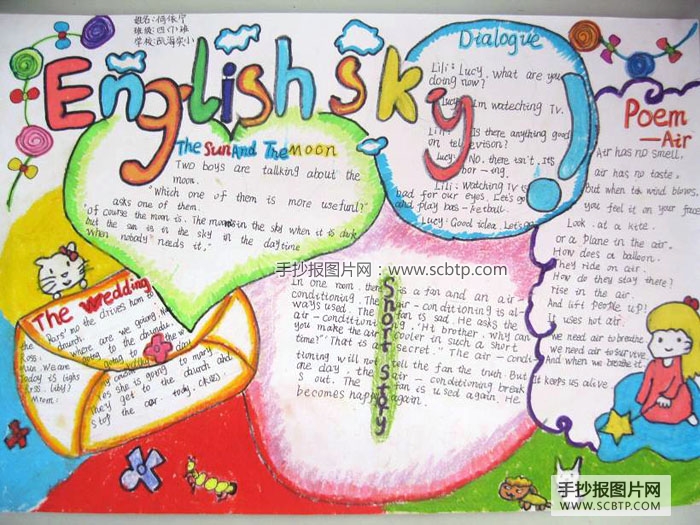 姓名:何依宁
班级:四(1)班
学校:凯海实小
English sky
Dialogue
Lili: Lucy, what are you
doing now?
Lucy: I'm wateching TV.
Lili: Is there anything good
on televison?
Lucy: No, there isn't. It's
bor-ing.
Lili: watching TV is
bad for our eyes. Let's go
and play bas-ketball.
Lucy: Good idea. Let's go
Poem
—Air
Air has no smell,
air has no taste,
But when the wind blows,
you feel it on your face
Look at a kite
or a plane in the air.
How does a balloon.
They ride on air.
How do they stay there?
rise in the air.
And lift people up?
It uses hot air
we need air to breathe
we need air to survive
And when we breathe it
It keeps us alive
The Sun And The Moon
Two boys are talking about the
moon.
"Which one of them is more useful?"
asks one of them.
"of course the moon is. The moon is in the sky when it is dark
but the sun is in the sky in the daytime
when nobody needs it."
手抄报图片网:www.scbtp.com
The wedding
where are we going
going to the
We are
Today is
going to
she is going to marry
They get to the church and
stop the car.
Short Story
In one room, there is a fan and an air-
conditioning. The air-conditioning is al-
ways used. The fan is sad. He asks the
air-conditioning, "Hi brother, why can
you make the air cooler in such a short
time?" "That is a secret." The air-condi-
tioning will not tell the fan the truth. But
one day, the air-conditioning break
s out. The fan is used again. He
becomes happy again.
手抄报图片网
WWW.SCBTP.COM